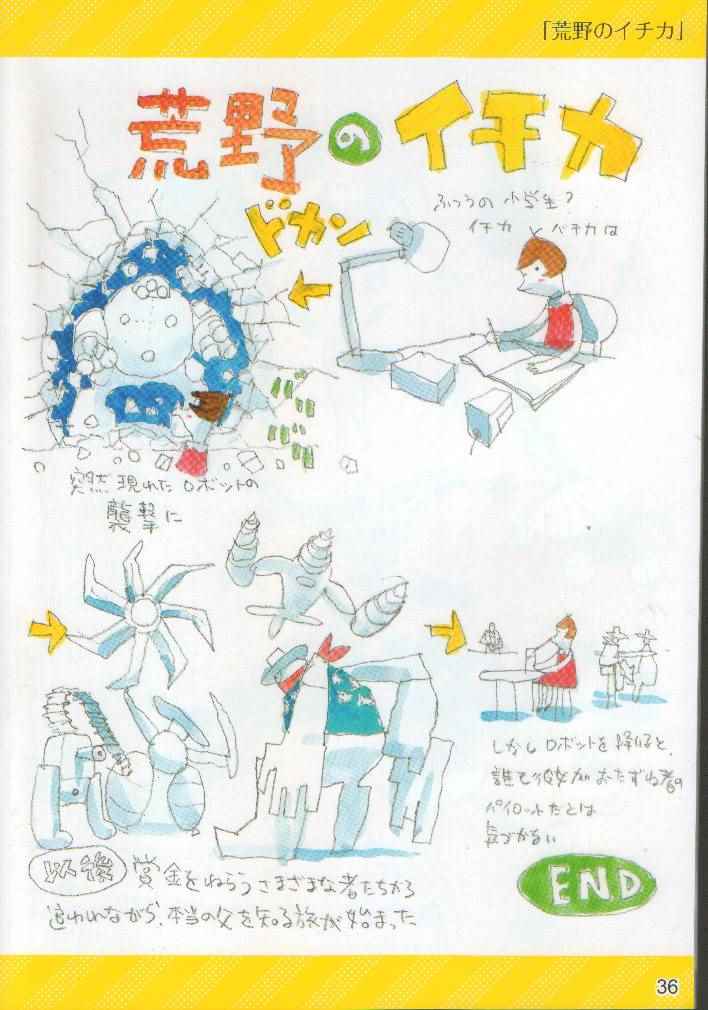 「荒野のイチカ」
荒野のイチカ
ふつうの小学生?
イチカ バチカは
ドカン
バババ
ババ
突然現れたロボットの
襲撃に
しかしロボットを降りると、
誰も彼女がおたずね者の
パイロットだとは
気づかない
以後 賞金をねらうさまざまな者たちから
追われながら、本当の父を知る旅が始まった
END
36